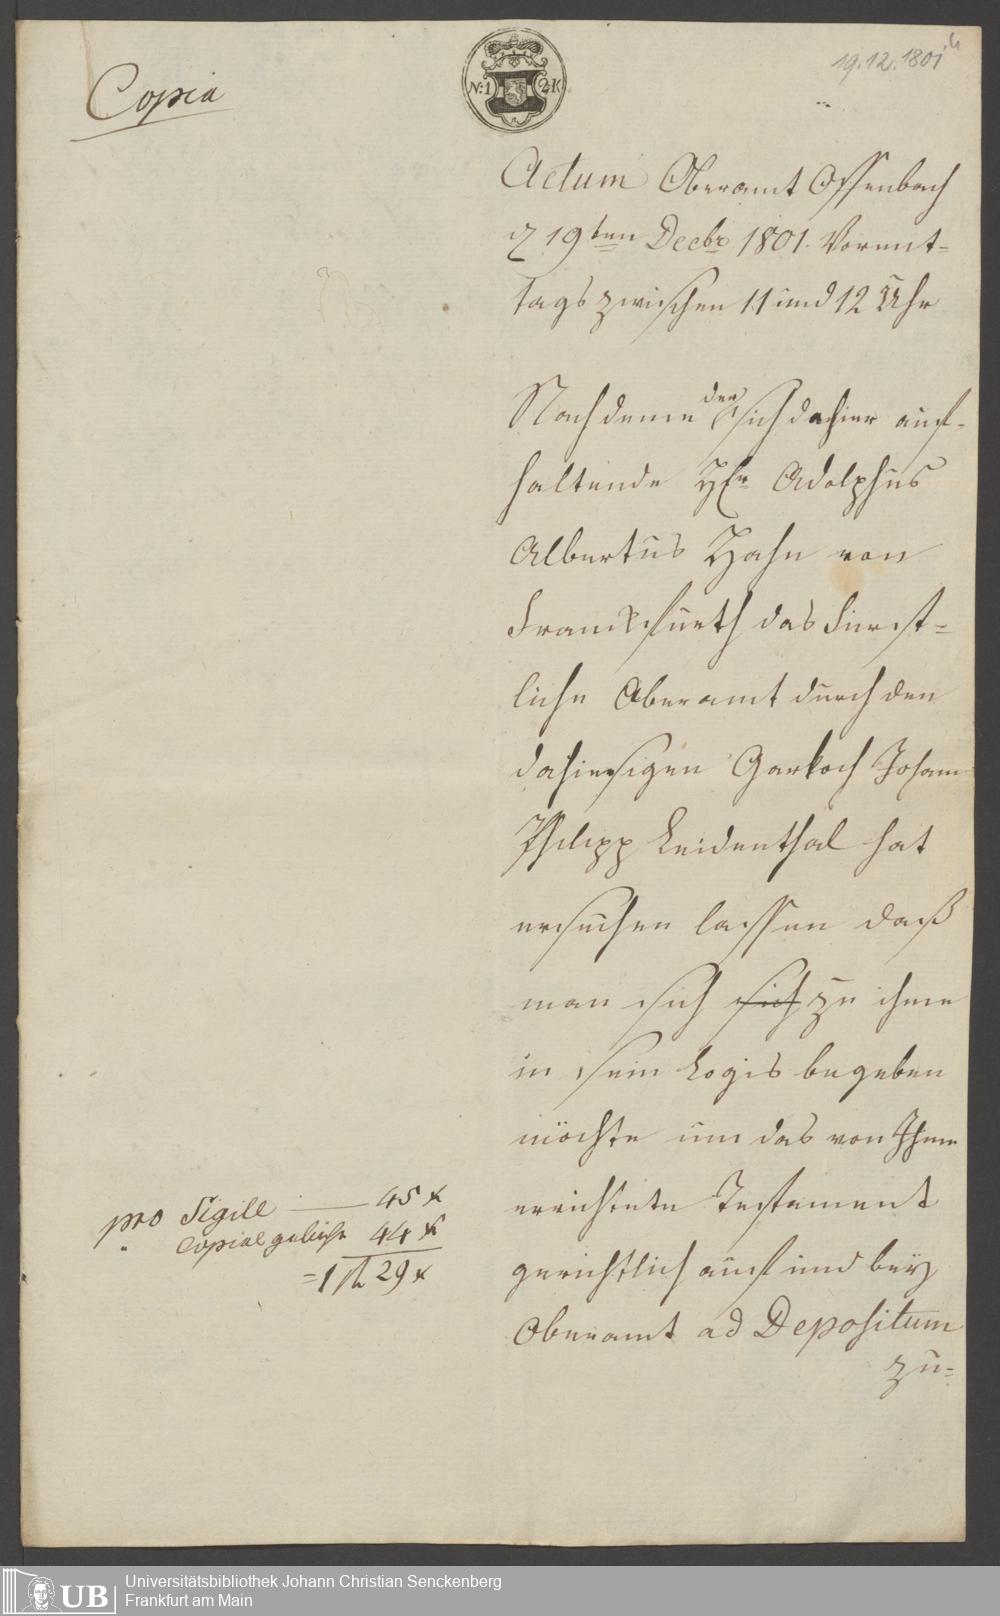 19.12.1801
Copia
N: 1 2 K
Actum Oberamt Offenbach
d 19ten Decbr 1801. Vormit-
tags zwischen 11 und 12 Uhr
Nachdeme der sich dahier auf-
haltende Hr Adolphus
Albertus Hahn von
Franckfurth das Fürst-
liche Oberamt durch den
dahiesigen Garkoch Johann
Philipp Leidenthal hat
ersuchen lassen daß
man sich sich zu ihme
in sein Logis begeben
möchte um das von Ihme
errichtete Testament
gerichtlich auf und bey
Oberamt ad Depositum
zu-
pro Sigill 45 x
" Copialgebühr 44 x
= 1 fl 29 x
UB Universitätsbibliothek Johann Christian Senckenberg
Frankfurt am Main